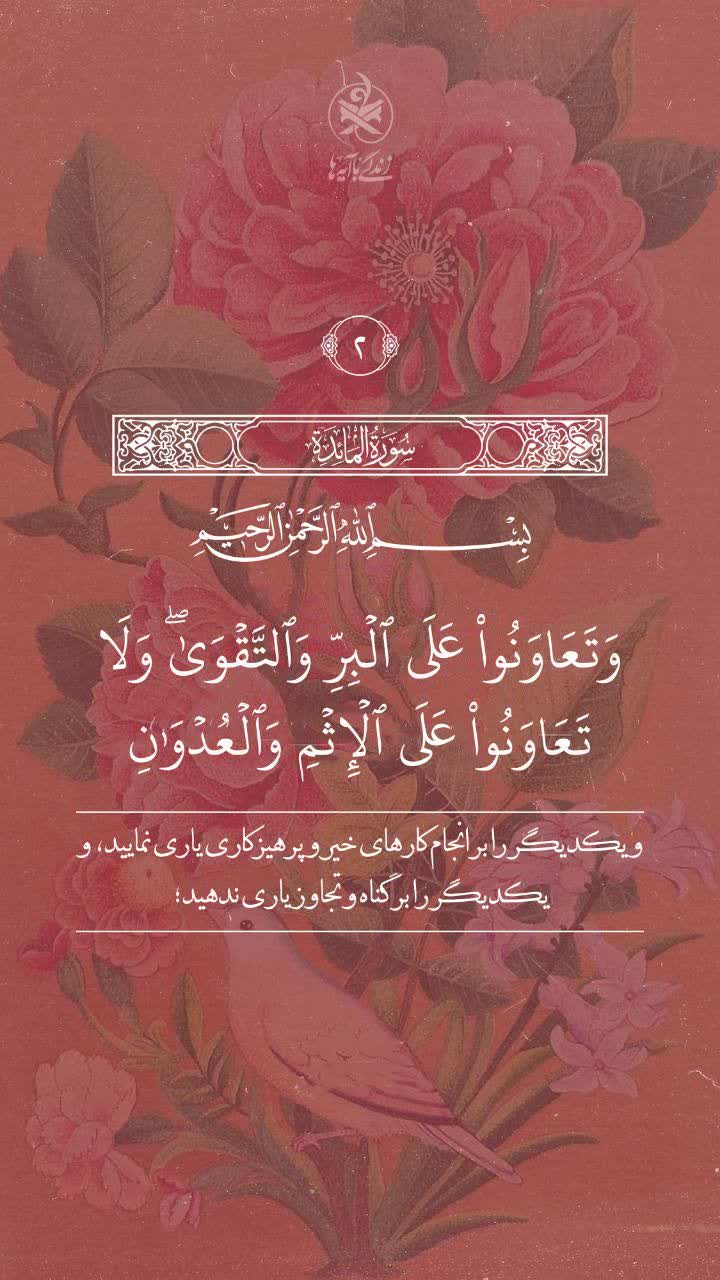 زندگی با آیه‌ها
۲
سُورَةُ المَائِدَة
بِسْمِ ٱللَّهِ ٱلرَّحْمَٰنِ ٱلرَّحِيمِ
وَتَعَاوَنُوا۟ عَلَى ٱلْبِرِّ وَٱلتَّقْوَىٰ ۖ وَلَا
تَعَاوَنُوا۟ عَلَى ٱلْإِثْمِ وَٱلْعُدْوَٰنِ
و یکدیگر را بر انجام کارهای خیر و پرهیزکاری یاری نمایید، و
یکدیگر را بر گناه و تجاوز یاری ندهید؛